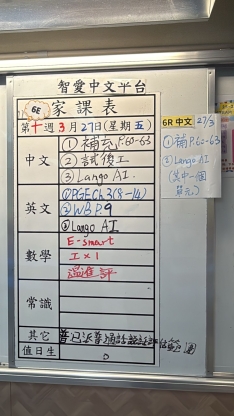 智愛中文平台
6E
家課表
第十週3月27日(星期五)
中文
①補充P.60-63
②試後工
③Lango AI.
英文
①PGE Ch3(8-14)
②WB P.9
③Lango AI
數學
E-smart
工×1
進評
常識
其它
普已派普通話
值日生
6R中文 27/3
①補P.60-63
②Lango AI
(其中一個
單元)